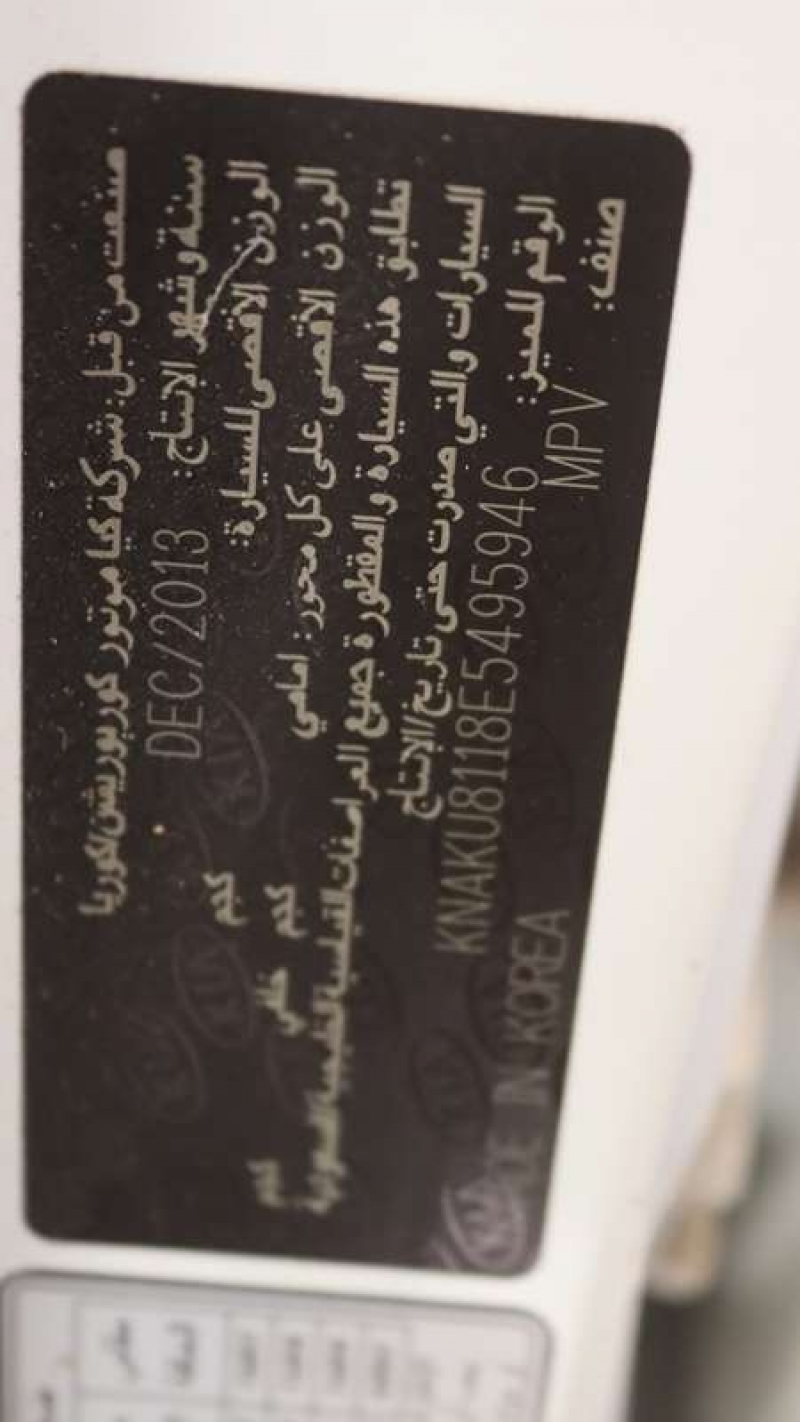 صنعت من قبل: شركة كيا موتور كوربوريشن/كوريا
سنة وشهر الإنتاج: DEC/2013
الوزن الاقصى للسيارة: كجم
الوزن الاقصى على كل محور: امامي كجم خلفي كجم
تطابق هذه السيارة والمقطورة جميع المواصفات القياسية الخليجية السعودية
السيارات والتي صدرت حتى تاريخ/الإنتاج
الرقم المميز: KNAKU8118E5495946
صنف: MPV
MADE IN KOREA
KIA